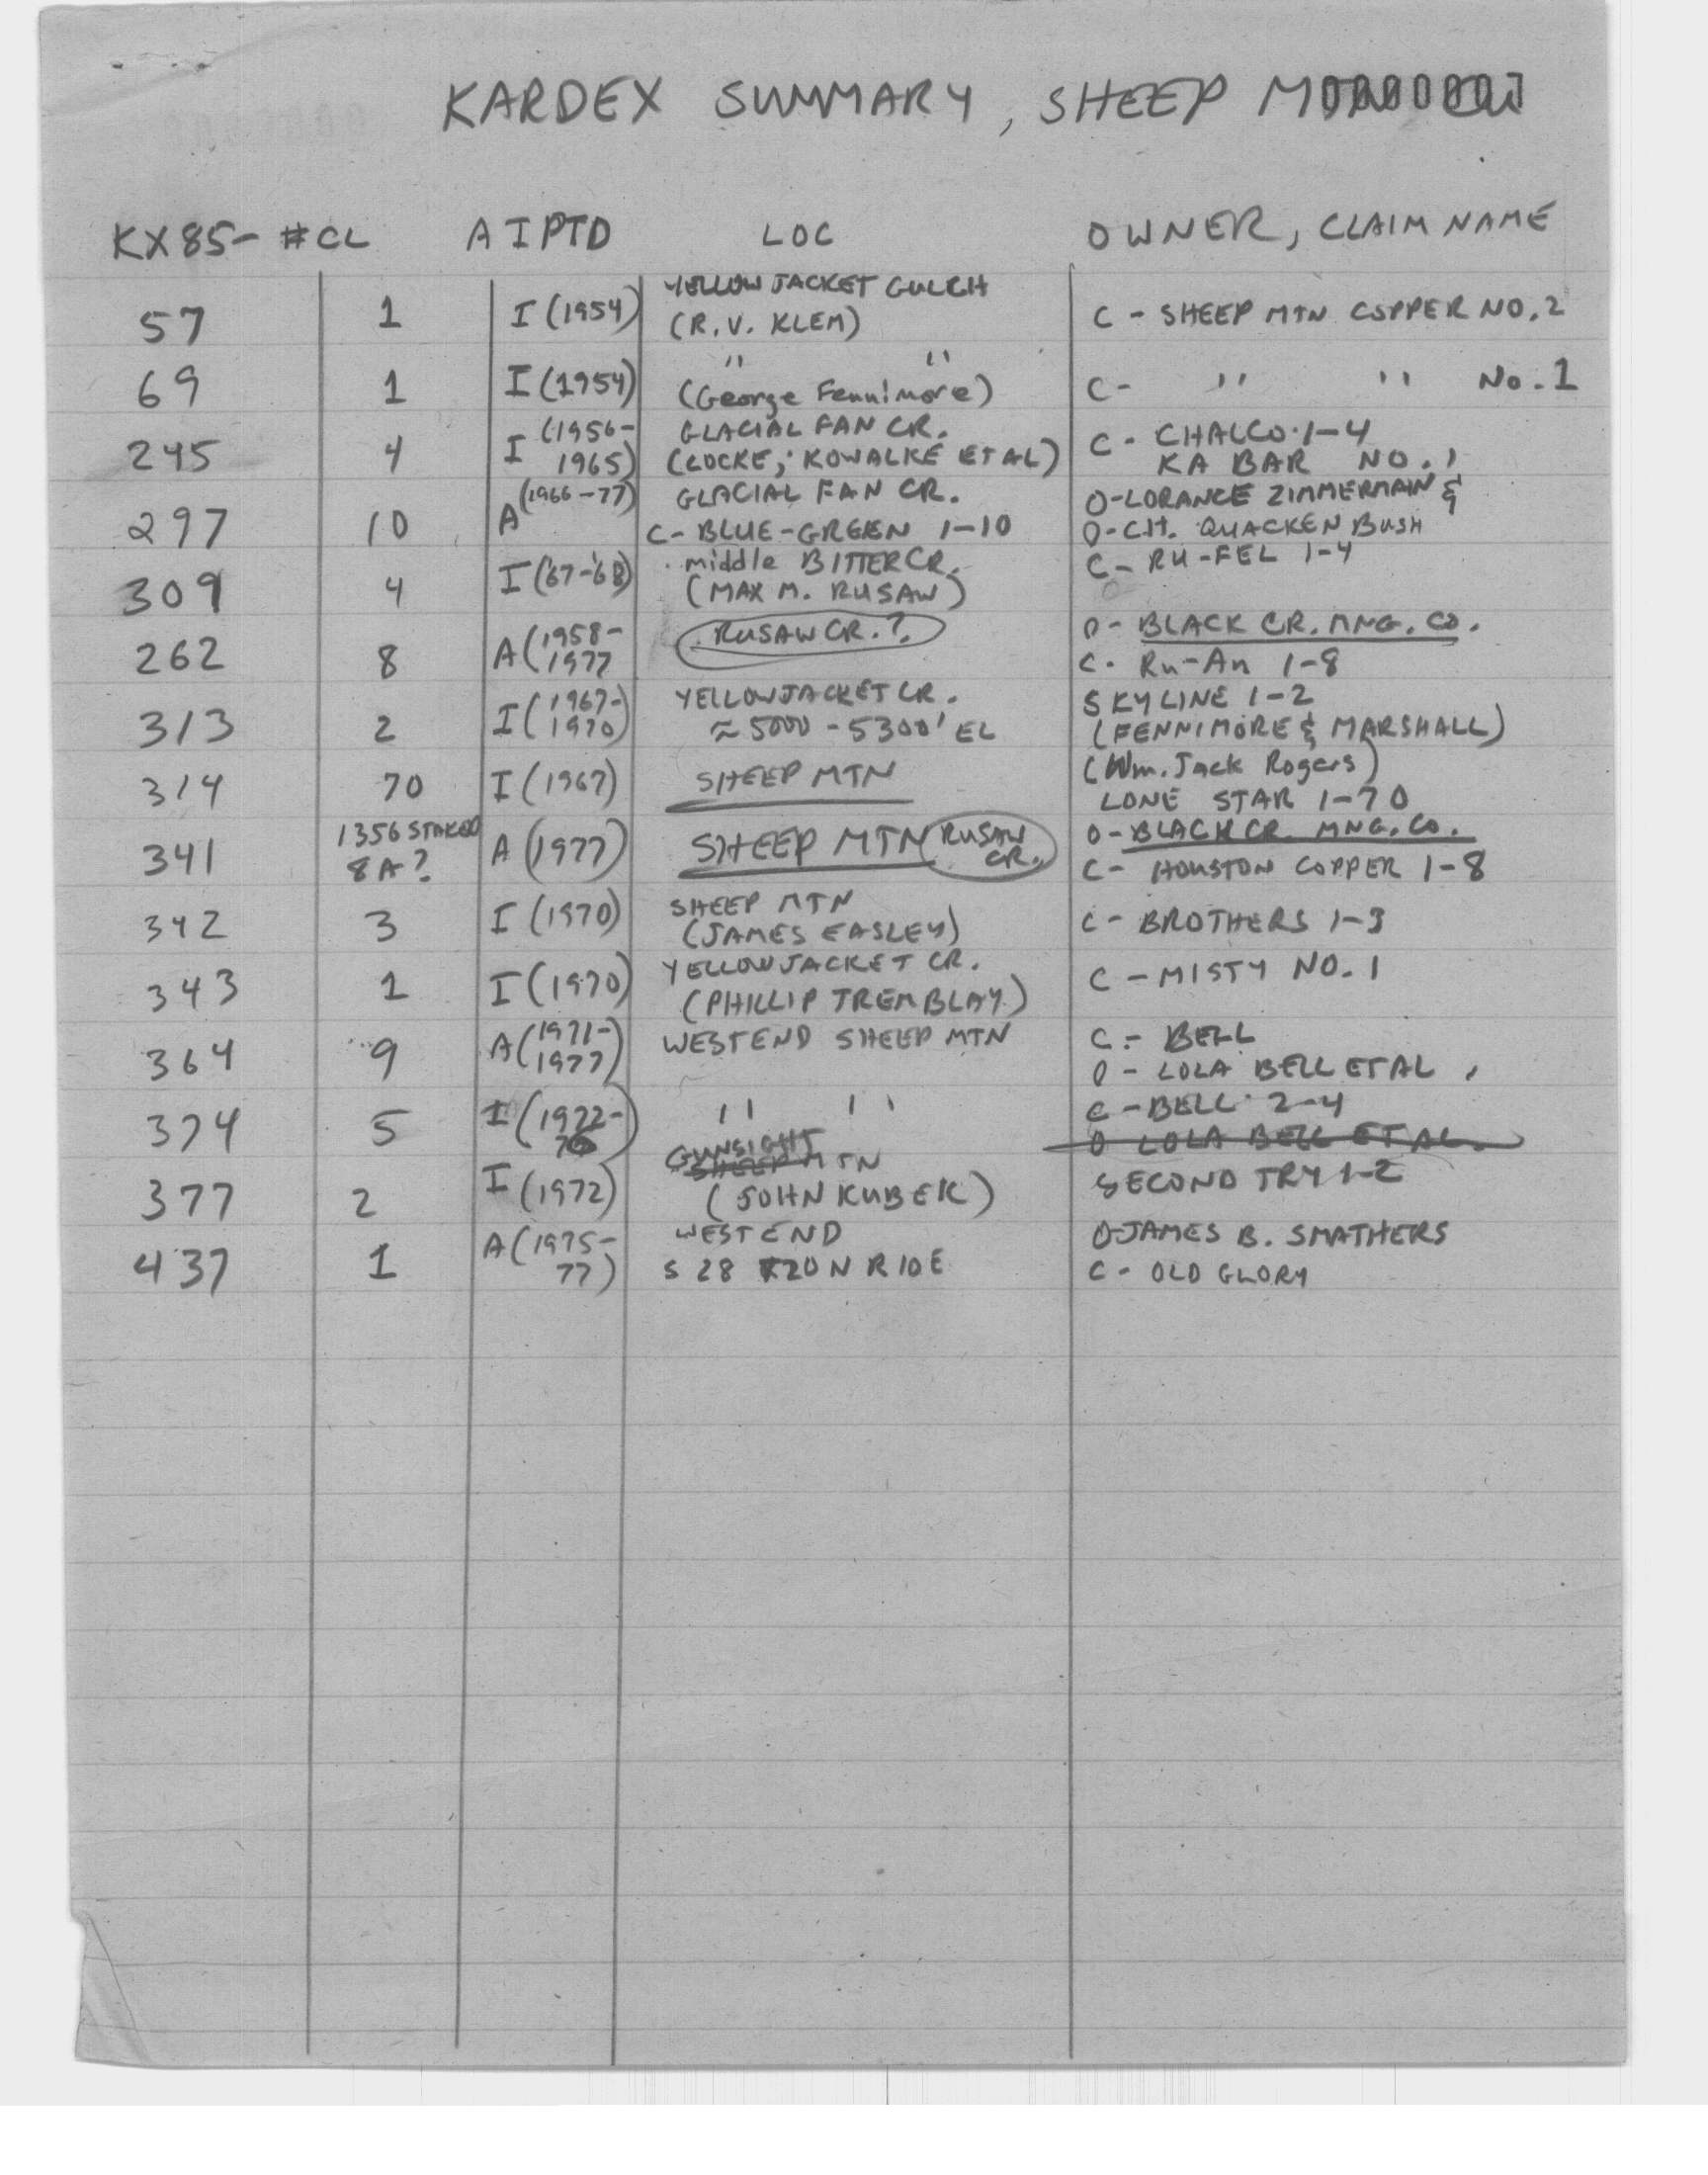 KARDEX SUMMARY, SHEEP
KX85- #CL A I PTD LOC OWNER, CLAIM NAME
YELLOWJACKET GULCH
57 1 I (1954) (R.V. KLEM) C - SHEEP MTN COPPER NO. 2
" "
69 1 I (1954) (George Fennimore) C - " " No. 1
245 4 I (1956- GLACIAL FAN CR. C - CHALCO 1-4
1965) (LOCKE, KOWALKE ET AL) KA BAR NO. 1
(1966-77) GLACIAL FAN CR. O-LORANCE ZIMMERMAN &
297 10 A C-BLUE-GREEN 1-10 O-C.H. QUACKENBUSH
309 4 I ('67-'68) middle BITTER CR. C- RU-FEL 1-4
(MAX M. RUSAW)
262 8 A (1958- RUSAW CR.? O- BLACK CR. MNG. CO.
1977 C. Ru-An 1-8
313 2 I (1967- YELLOWJACKET CR. SKYLINE 1-2
1970) ≈ 5000 - 5300' EL (FENNIMORE & MARSHALL)
314 70 I (1967) SHEEP MTN (Wm. Jack Rogers)
LONE STAR 1-70
341 1356 STAKED A (1977) SHEEP MTN (RUSAW CR.) O-BLACK CR. MNG. CO.
8A? C- HOUSTON COPPER 1-8
342 3 I (1970) SHEEP MTN C- BROTHERS 1-3
(JAMES EASLEY)
343 1 I (1970) YELLOWJACKET CR. C - MISTY NO. 1
(PHILLIP TREMBLAY)
364 9 A (1971- WEST END SHEEP MTN C - BELL
1977) O - LOLA BELL ET AL,
374 5 I (1972- " " C - BELL 2-4
O LOLA BELL ET AL.
GUNSIGHT
377 2 I (1972) SHEEP MTN SECOND TRY 1-2
(JOHN KUBEK)
437 1 A (1975- WEST END O-JAMES B. SMATHERS
77) S 28 T20N R10E C - OLD GLORY